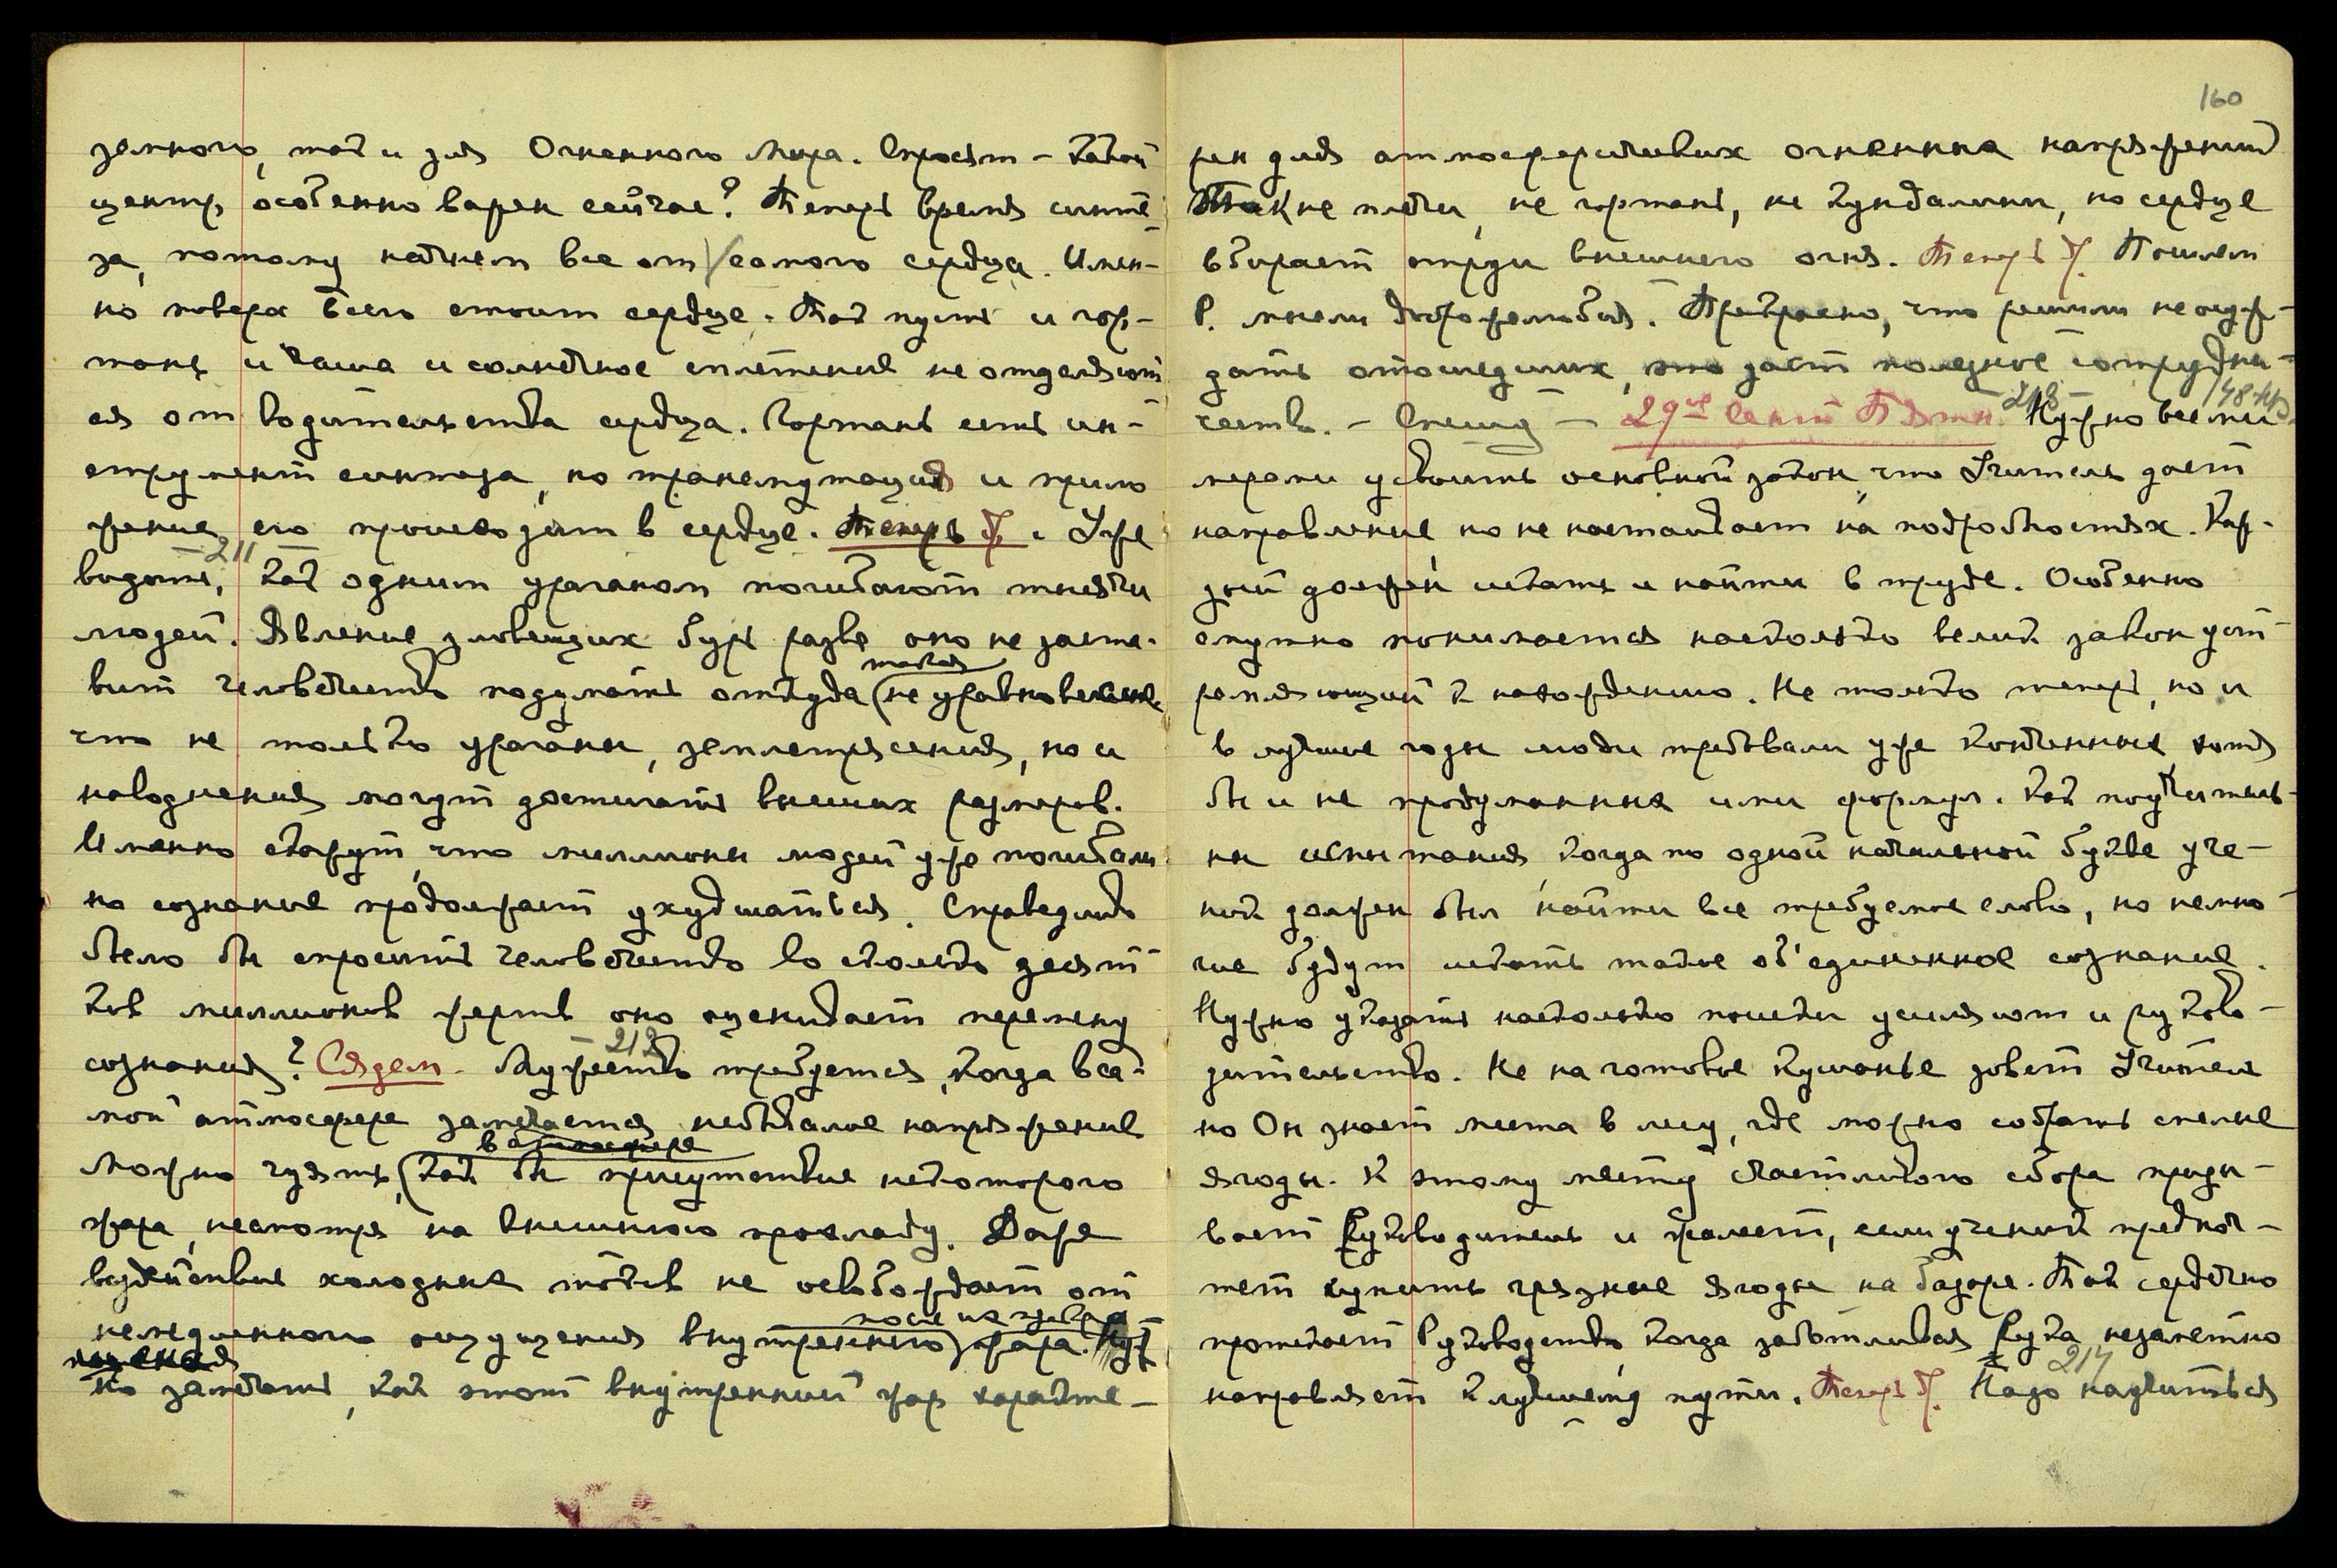 земного, так и для Огненного Мира. Спросят – какой
центр особенно важен сейчас? Теперь время синте
за, потому начнем все от самого сердца. Имен-
но поверх всего стоит сердце. Так пусть и гор-
тань и чаша и солнечное сплетение не отделяют
ся от водительства сердца. Гортань есть ин-
струмент синтеза, но трансмутация и прило
жение его происходит в сердце. Теперь У. Уже
– 211 –
видите, как одним ураганом погибают тысячи
людей. Явление зловещих бурь разве оно не заста-
вит человечество подумать откуда (такая неуравновесие
что не только ураганы, землетрясения, но и
наводнения могут достигать высших размеров.
Именно скажут, что миллионы людей уже погибали
но сознание продолжает ухудшаться. Справедливо
было бы спросить человечество во сколько десят
ков миллионов жертв оно оценивает перемену
– 212
сознания? Сядем. Мужество требуется, когда в са-
мой атмосфере замечается небывалое напряжение
в атмосфере
Можно чуять, (как бы присутствие некоторого
жара, несмотря на внешнюю прохладу. Даже
воздействие холодных токов не освобождает от
немедленного ощущения внутреннего) жара. Нуж
но замечать, как этот внутренний жар характе-
160
рен для атмосферических огненных напряжений
Так не плечи, не гортань, не Кундалини, но сердце
вбирает труды внешнего огня. Теперь У. Пошлем
Р. мысли доброжелания. Прекрасно, что решили не осуж-
дать отошедших, это даст полезное сотрудни-
– 213 –
чество. – Спешу – 29ое Сент Пятн. Нужно всеми
мерами усвоить основной закон, что Учитель дает
направление, но не настаивает на подробностях. Каж-
дый должен искать и найти в труде. Особенно
смутно понимается насколько велик закон уст
ремляющий к нахождению. Не только теперь, но и
в лучшие годы люди требовали уже конченные, хотя
бы и не продуманные ими формул. Как поучитель-
ны испытания, когда по одной начальной букве уче-
ник должен был найти все требуемое слово, но немно
гие будут искать такое об'единенное сознание.
Нужно указать насколько поиски усиляют и руково-
дительство. Не на готовое кушанье зовет Учитель
но Он знает места в лесу, где можно собрать спелые
ягоды. К этому месту счастливого сбора призы-
вает Руководитель и жалеет, если ученик предпоч-
тет купить грязные ягоды на базаре. Так сердечно
протекает Руководство, когда заботливая Рука незаметно
214
направляет к лучшему пути. Теперь У. Надо научиться